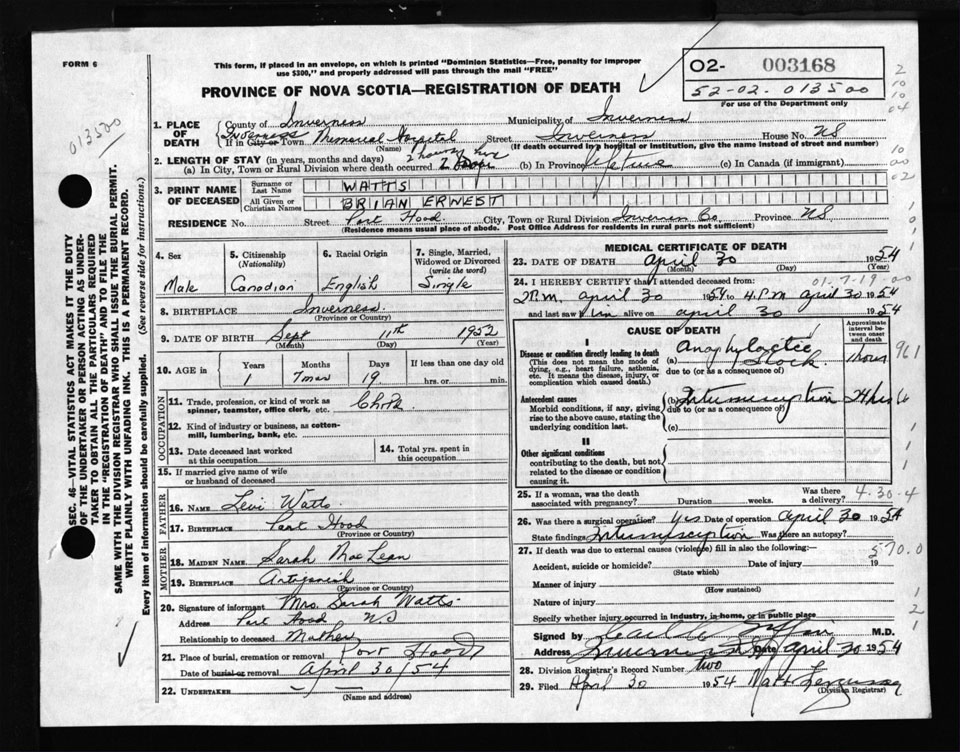 FORM 6
This form, if placed in an envelope, on which is printed "Dominion Statistics—Free, penalty for improper
use $300," and properly addressed will pass through the mail "FREE"
PROVINCE OF NOVA SCOTIA—REGISTRATION OF DEATH
O2- 003168
52-02. 013500
For use of the Department only
013500
1. PLACE OF DEATH
County of Inverness Municipality of Inverness
Inverness
If in City or Town Memorial Hospital Street Inverness House No. NS
(Name) (If death occurred in a hospital or institution, give the name instead of street and number)
2. LENGTH OF STAY (in years, months and days)
2 hours
(a) In City, Town or Rural Division where death occurred (b) In Province (c) In Canada (if immigrant)
3. PRINT NAME OF DECEASED
Surname or Last Name WATTS
All Given or Christian Names BRIAN ERNEST
RESIDENCE No. Street Port Hood City, Town or Rural Division Inverness Co. Province NS
(Residence means usual place of abode. Post Office Address for residents in rural parts not sufficient)
4. Sex Male
5. Citizenship (Nationality) Canadian
6. Racial Origin English
7. Single, Married, Widowed or Divorced (write the word) Single
8. BIRTHPLACE Inverness
(Province or Country)
9. DATE OF BIRTH Sept 11th 1952
(Month) (Day) (Year)
10. AGE in Years Months Days If less than one day old
1 7 mos 19 hrs. or min.
OCCUPATION
11. Trade, profession, or kind of work as
spinner, teamster, office clerk, etc. Child
12. Kind of industry or business, as cotton-
mill, lumbering, bank, etc.
13. Date deceased last worked at this occupation
14. Total yrs. spent in this occupation
15. If married give name of wife
or husband of deceased
FATHER
16. NAME Levi Watts
17. BIRTHPLACE Port Hood
(Province or Country)
MOTHER
18. MAIDEN NAME Sarah MacLean
19. BIRTHPLACE Antigonish
(Province or Country)
20. Signature of informant Mrs. Sarah Watts
Address Port Hood NS
Relationship to deceased Mother
21. Place of burial, cremation or removal Port Hood
Date of burial or removal April 30/54
22. UNDERTAKER
(Name and address)
MEDICAL CERTIFICATE OF DEATH
23. DATE OF DEATH April 30 1954
(Month) (Day) (Year)
24. I HEREBY CERTIFY that I attended deceased from
2 P.M. April 30 1954 to 4 P.M. April 30 1954
and last saw him alive on April 30 1954
CAUSE OF DEATH
Approximate interval between onset and death
I
Disease or condition directly leading to death
(This does not mean the mode of
dying, e.g., heart failure, asthenia,
etc. It means the disease, injury, or
complication which caused death.)
(a) Anaphylactic Shock
due to (or as a consequence of)
961
Antecedent causes
Morbid conditions, if any, giving
rise to the above cause, stating the
underlying condition last.
(b) Intussusception 24 hrs
due to (or as a consequence of)
(c)
II
Other significant conditions
contributing to the death, but not
related to the disease or condition
causing it.
25. If a woman, was the death
associated with pregnancy? Duration weeks. Was there a delivery?
4-30-4
26. Was there a surgical operation? Yes Date of operation April 30 1954
State findings Intussusception Was there an autopsy?
27. If death was due to external causes (violence) fill in also the following:— 570.0
Accident, suicide or homicide? Date of injury 19
(State which)
Manner of injury
(How sustained)
Nature of injury
Specify whether injury occurred in industry, in home, or in public place
Signed by M.D.
Address Inverness Date April 30 1954
28. Division Registrar's Record Number two
29. Filed April 30 1954
(Division Registrar)
SEC. 46—VITAL STATISTICS ACT MAKES IT THE DUTY
OF THE UNDERTAKER OR PERSON ACTING AS UNDER-
TAKER TO OBTAIN ALL THE PARTICULARS REQUIRED
IN THE "REGISTRATION OF DEATH" AND TO FILE THE
SAME WITH THE DIVISION REGISTRAR WHO SHALL ISSUE THE BURIAL PERMIT.
WRITE PLAINLY WITH UNFADING INK. THIS IS A PERMANENT RECORD.
Every item of information should be carefully supplied. (See reverse side for instructions.)